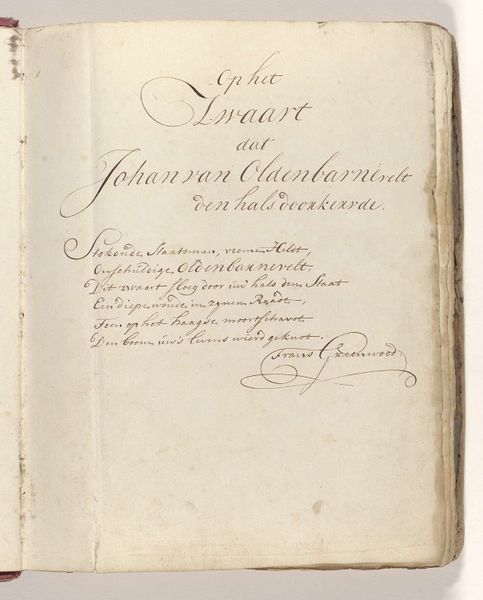 Op het
Zwaart
dat
Johan van Oldenbarnevelt
den hals doorkerfde.
Stokoude Staatsman, vrome Heldt,
Onschuldige Oldenbarnevelt,
Dit zwaart sloeg door uw hals den Staat
Een diepe wonde in zynen Raadt,
Toen op het haagse moortschavot
Den boom uw's levens wierd geknot.
Frans Greenwood